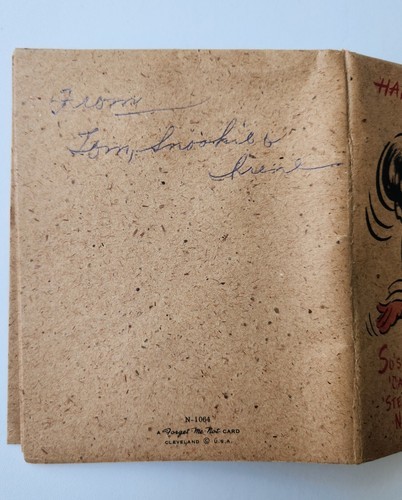 From
Tom, Snookie &
Irene
HA
SO'S
'STE
N
N-1064
A Forget Me Not CARD
CLEVELAND © U.S.A.